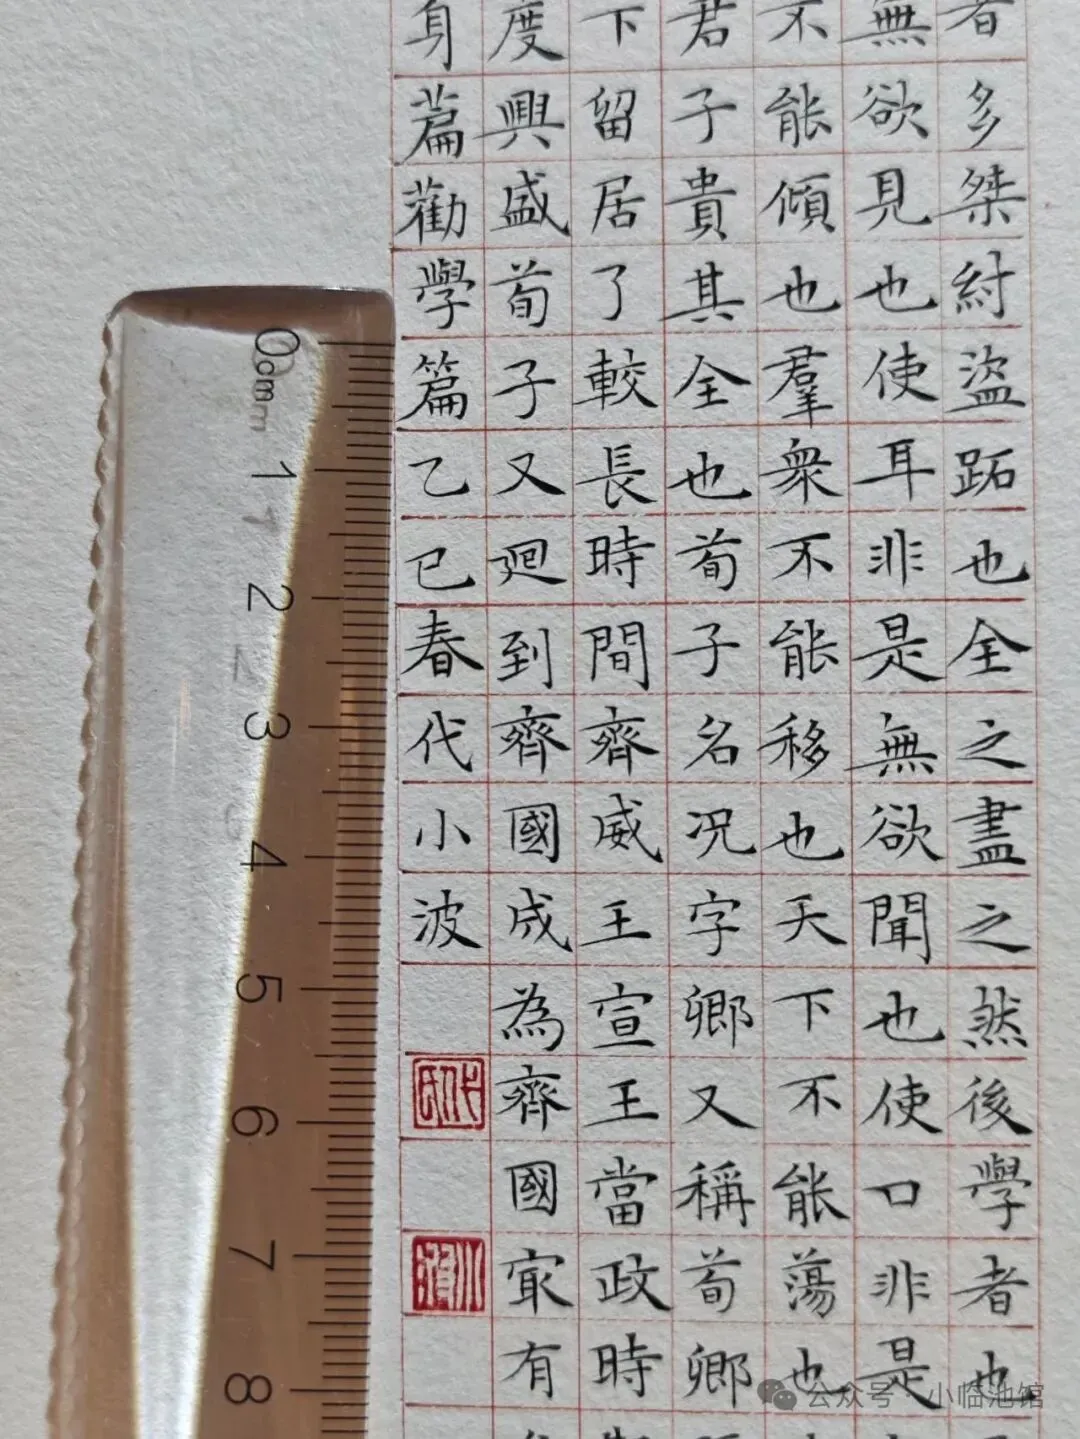 者多桀紂盜跖也全之盡之然後學者也
無欲見也使耳非是無欲聞也使口非是
不能傾也羣衆不能移也天下不能蕩也
君子貴其全也荀子名况字卿又稱荀卿
下留居了較長時間齊威王宣王當政時
度興盛荀子又廻到齊國成為齊國㝡有
身篇勸學篇乙巳春代小波
代氏
小波
0cm
1
2
3
4
5
6
7
8
公众号·小临池馆